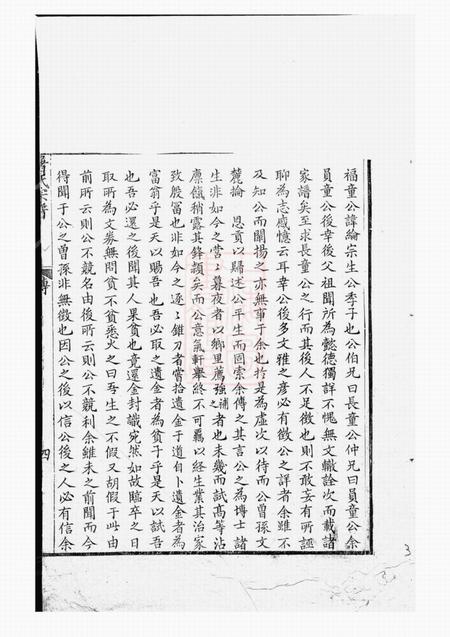 福童公諱綸宗生公季子也公伯兄曰長童公仲兄曰員童公余
員童公後幸後父祖聞所為懿德獨詳不愧無文輙詮次而載諸
家譜矣至求長童公之行而其後人不足徵也則不敢妄有所誣
聊為志感憶云耳幸公後多文雅之彥必有徵公之詳者余雖不
及知公而闡揚之亦無事于余也於是為虛次以待而公曾孫文
麓掄恩貢歸述公平生而囙索傳之其言公之為博士諸
生非如今之営〻暮夜者以鄉里薦強補之者也未幾而試高等沾
廪餼稍露其鋒頴矣而公意氣軒舉終不可羈以經生業其治家
致殷冨也非如今之逐〻錐刀者嘗拾遺金于道自卜遺金者為
富翁乎是天以賜吾也吾必取之遺金者為貧子乎是天以試吾
也吾必還之後聞其人果貧也竟還金封識宛然如故臨卒之日
取所為文券無問貧不貧悉火之曰吾生之不假又胡假于此由
前所云則公不競名由後所云則公不競利余雖未之前聞而今
得聞于公之曾孫非無徵也因公之後以信公後之人必有信余
傳
四
3